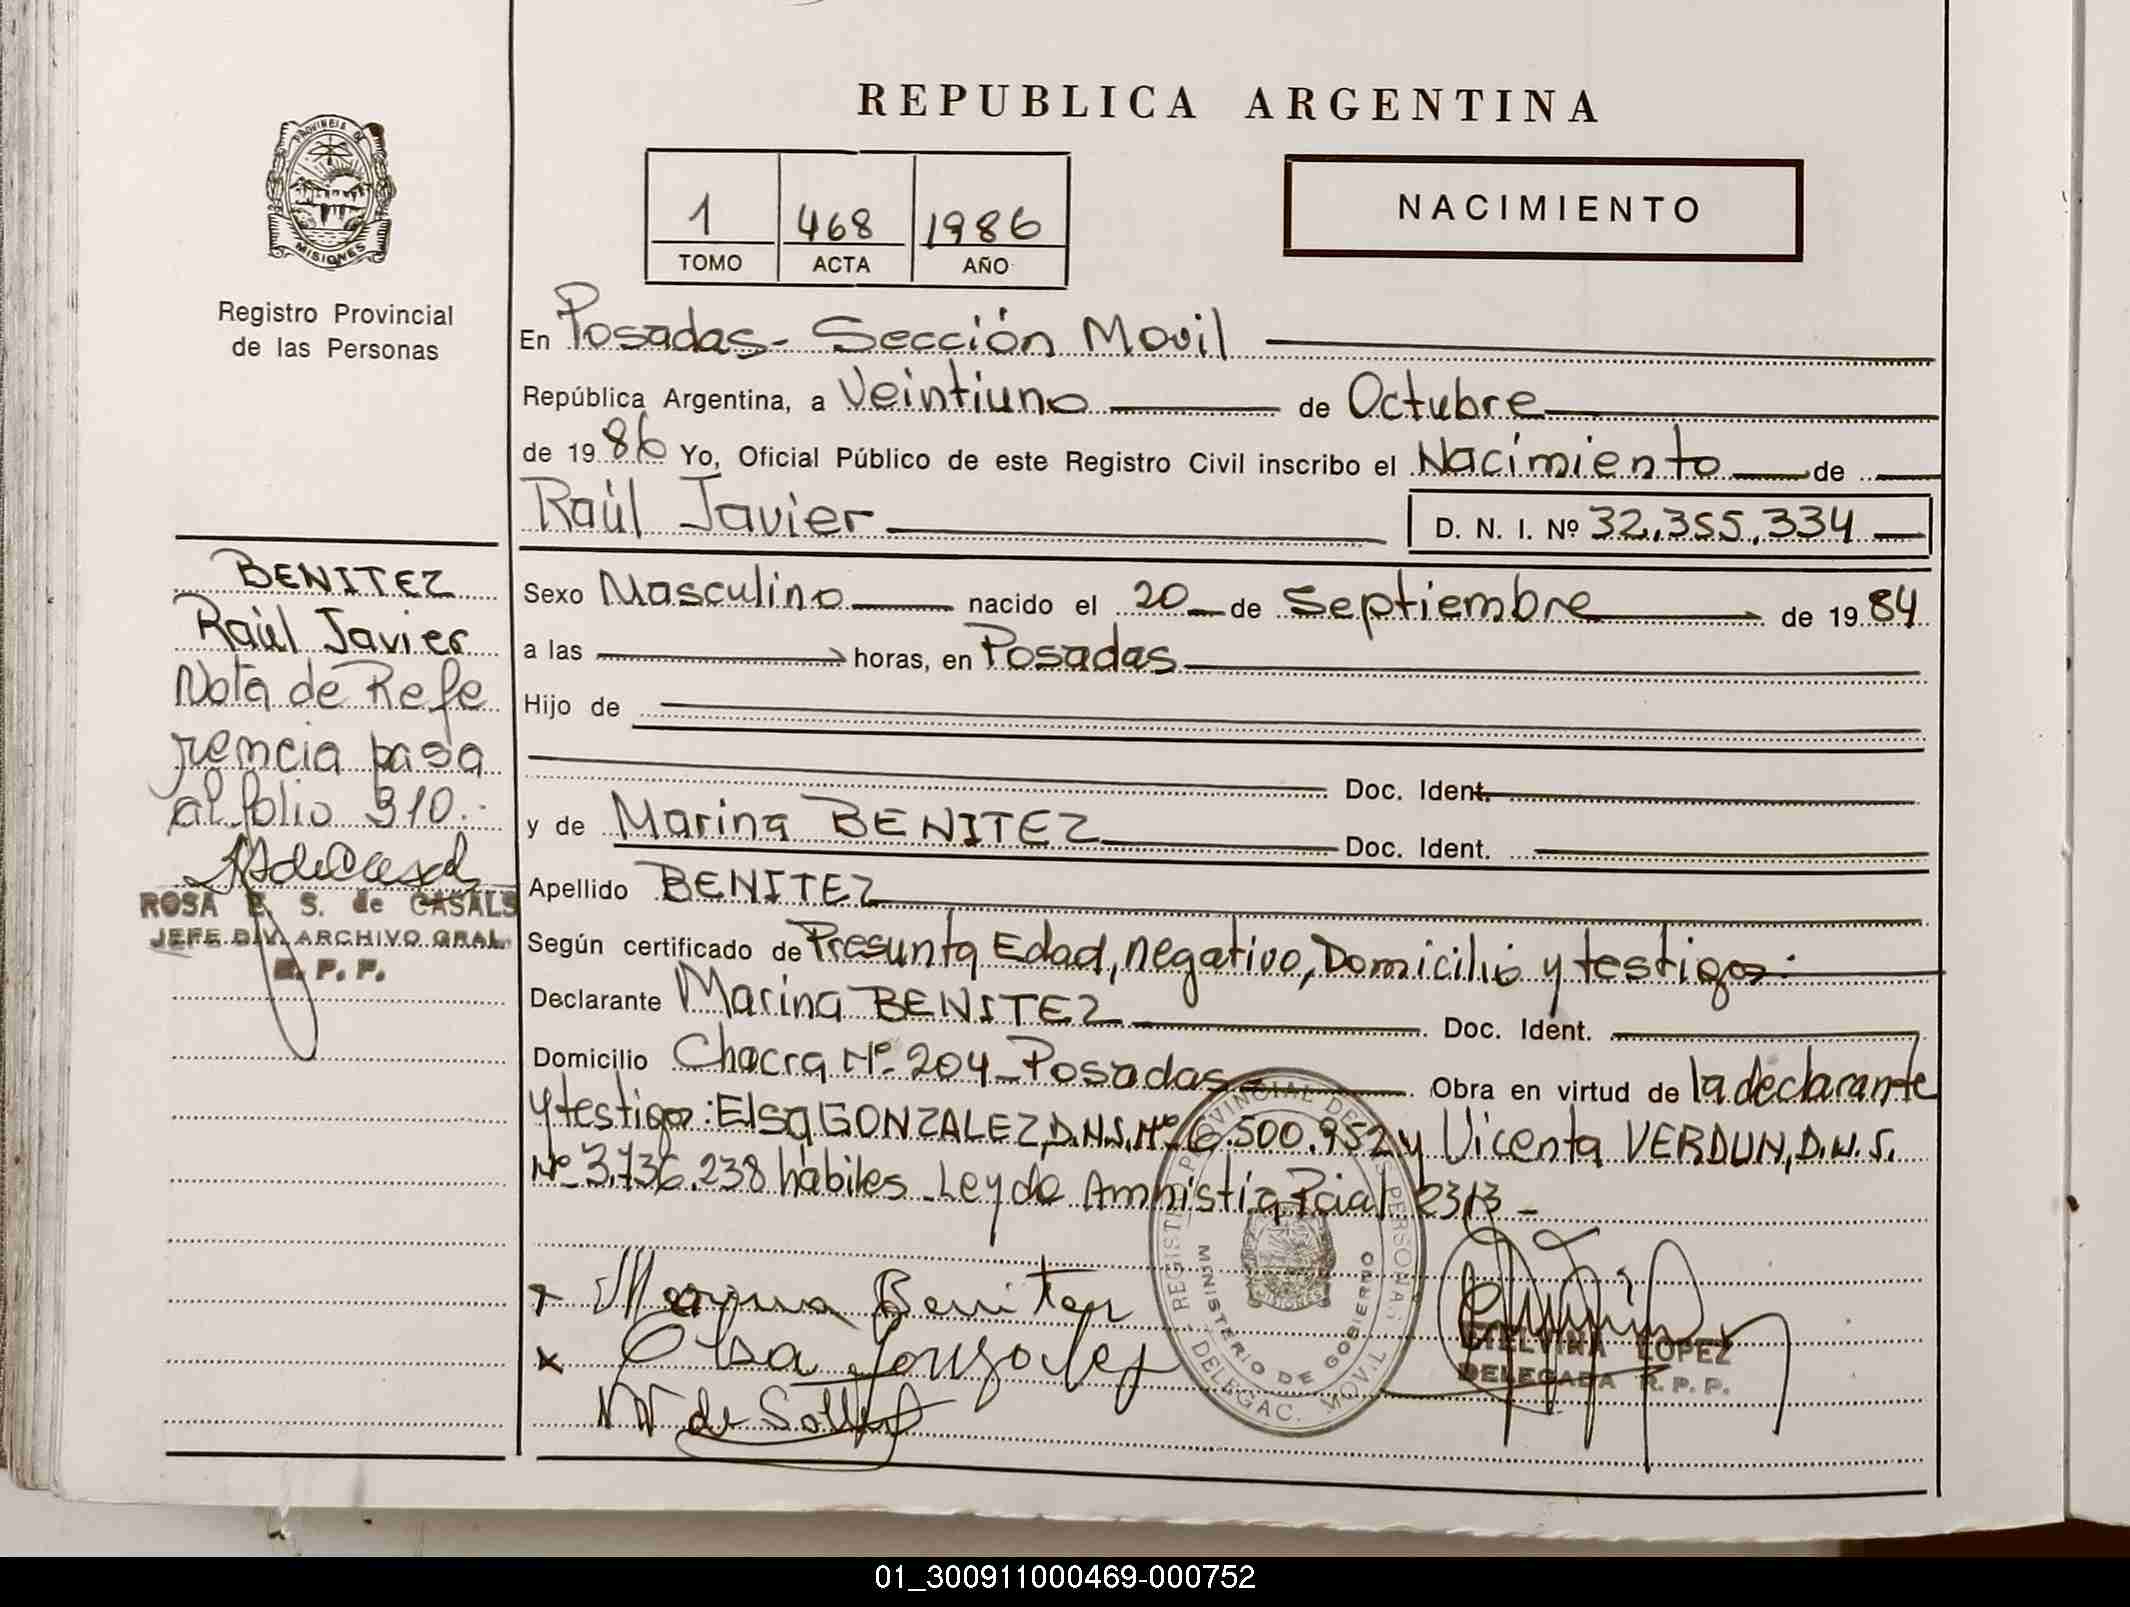 REPUBLICA ARGENTINA
PROVINCIA DE
MISIONES
Registro Provincial
de las Personas
1 468 1986
TOMO ACTA AÑO
NACIMIENTO
En Posadas - Sección Movil
República Argentina, a Veintiuno de Octubre
de 1986 Yo, Oficial Público de este Registro Civil inscribo el Nacimiento de
Raúl Javier D. N. I. Nº 32.355.334
BENITEZ
Raúl Javier
Nota de Refe
rencia pasa
al folio 310.-
ROSA E. S. de CASALS
JEFE DIV. ARCHIVO GRAL.
R. P. P.
Sexo Masculino nacido el 20 de Septiembre de 1984
a las horas, en Posadas
Hijo de
Doc. Ident.
y de Marina BENITEZ Doc. Ident.
Apellido BENITEZ
Según certificado de Presunta Edad, negativo, Domicilio y testigos.-
Declarante Marina BENITEZ Doc. Ident.
Domicilio Chacra Nº 204 - Posadas Obra en virtud de la declarante
y testigos: Elsa GONZALEZ, D.N.I. Nº 6.500.952 y Vicenta VERDUN, D.N.I.
Nº 3.736.238 hábiles - Ley de Amnistia Pcial 2313 -
x Marina Benitez
x Elsa Gonzalez
REGISTRO PROVINCIAL DE LAS PERSONAS
MINISTERIO DE GOBIERNO
DELEGAC. MOVIL
ETELVINA LOPEZ
DELEGADA R. P. P.
01_300911000469-000752